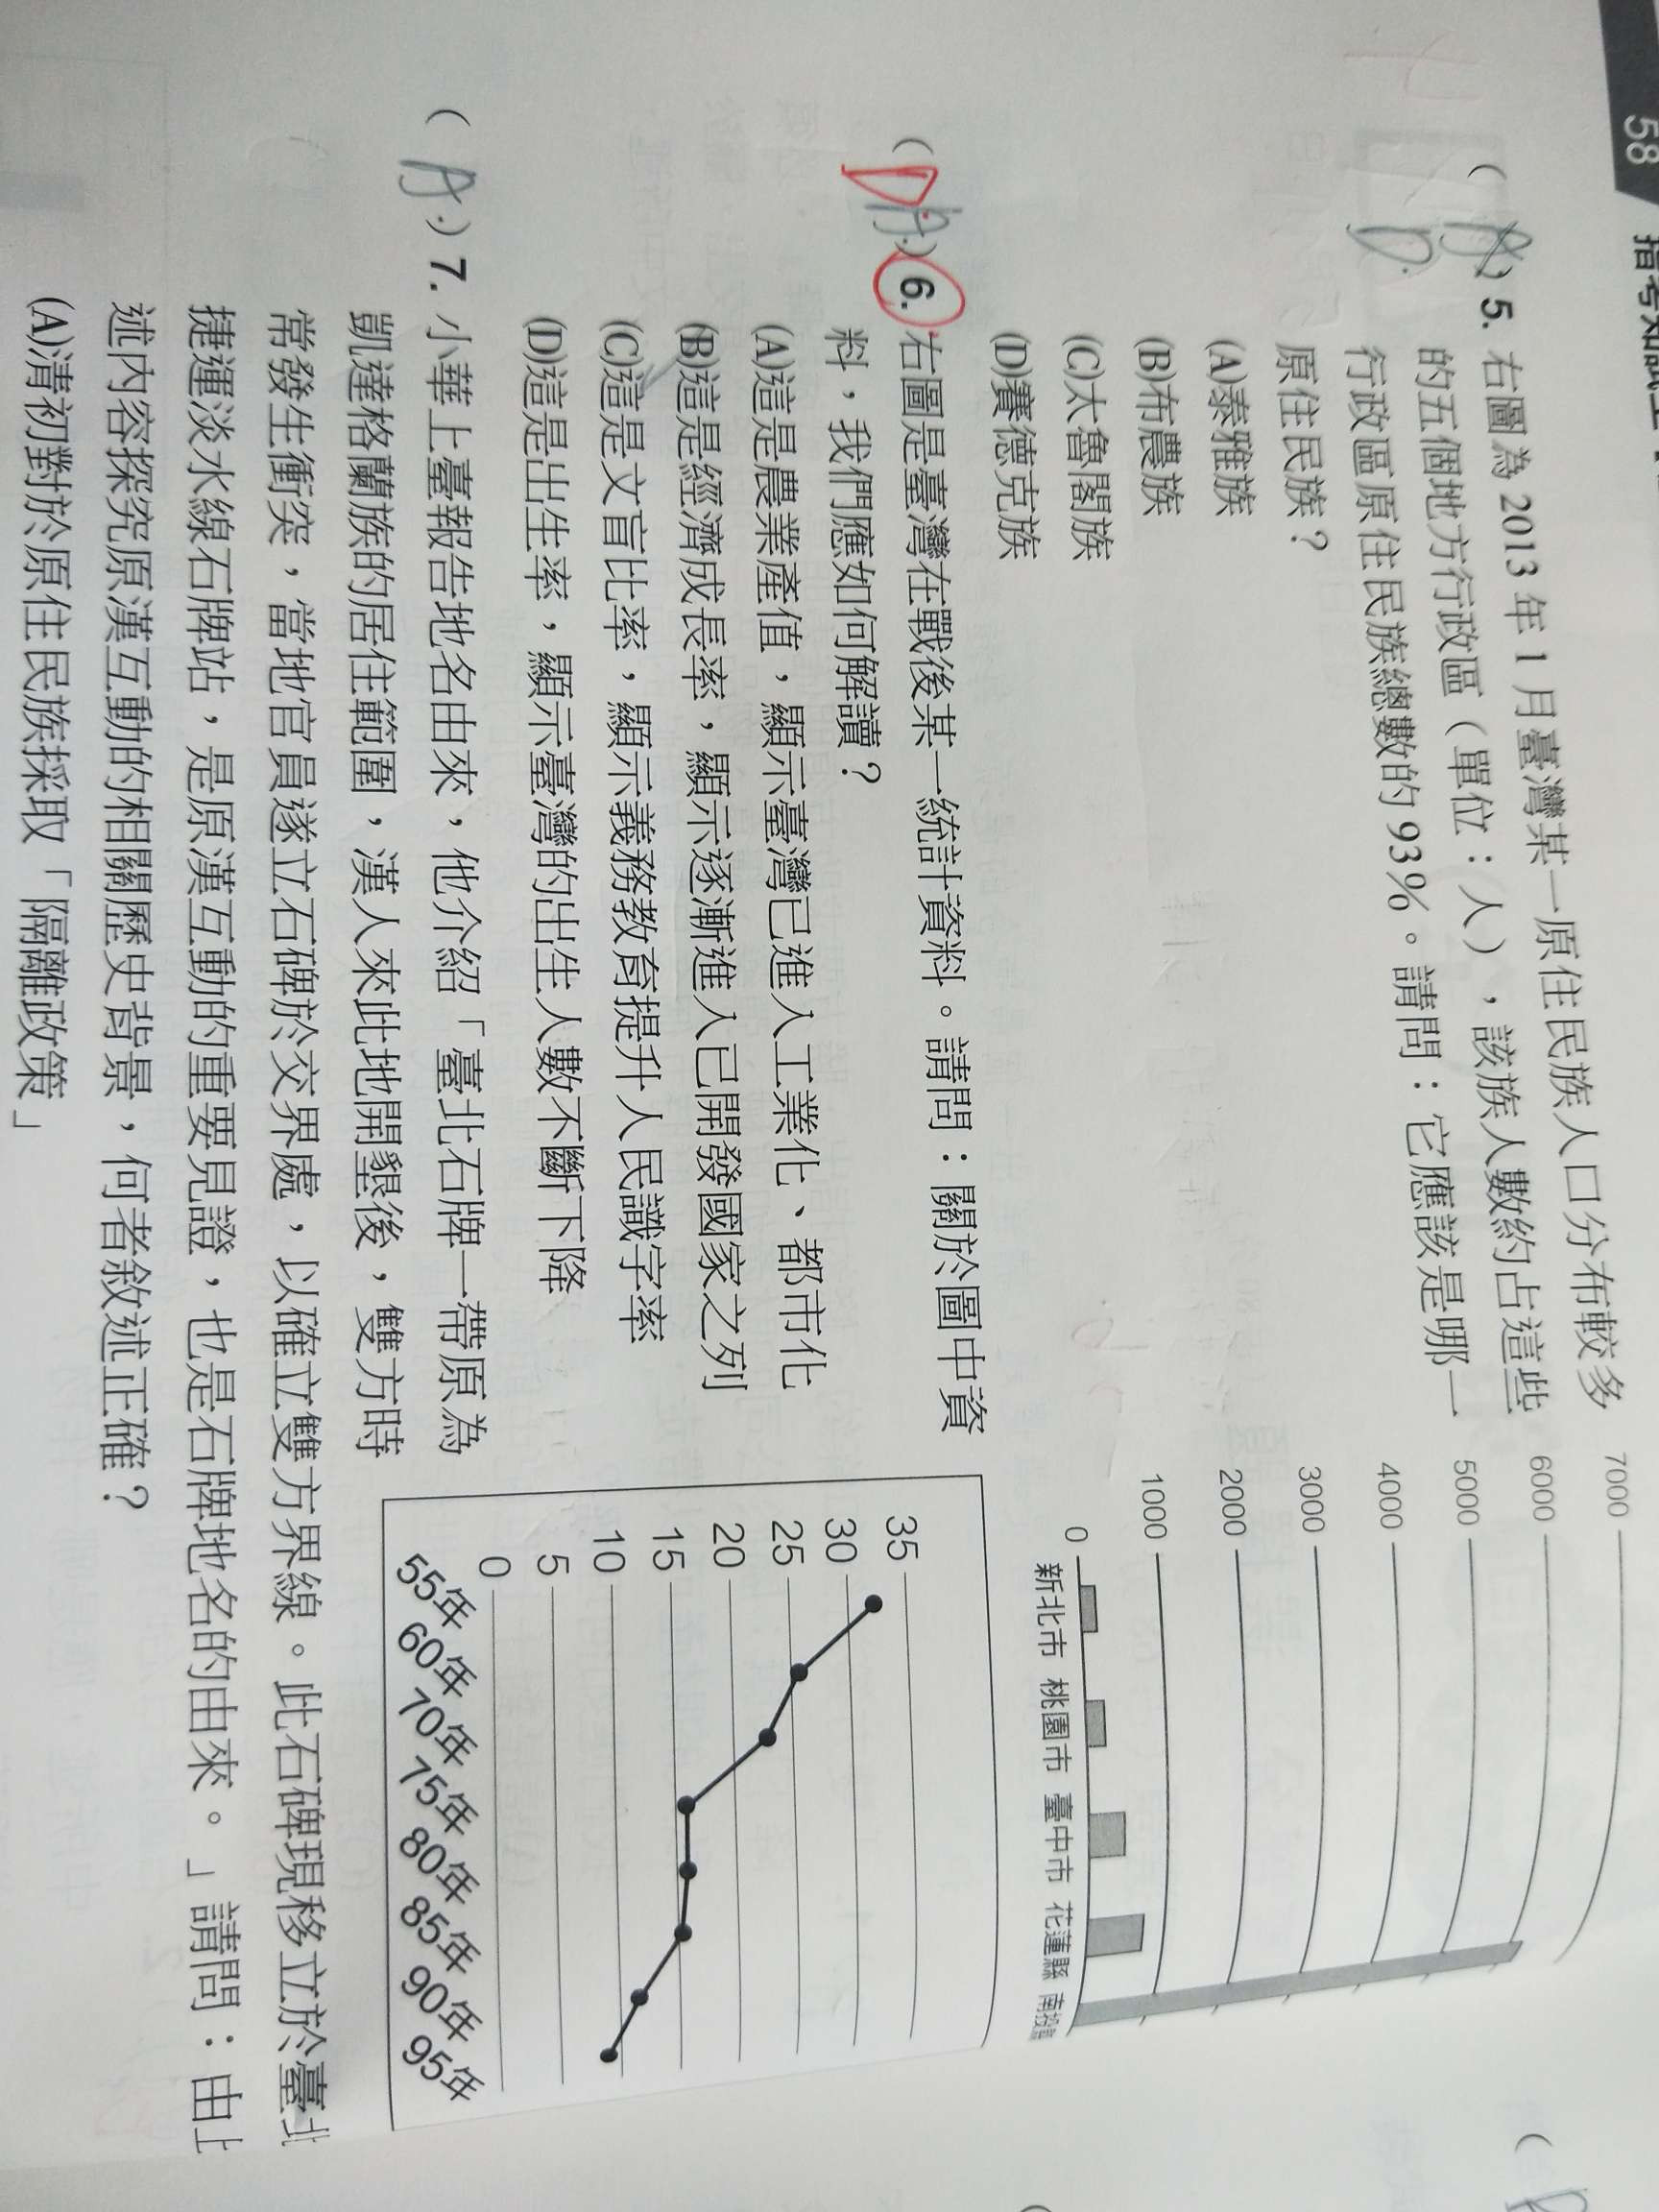 58
(A)5. 右圖為 2013 年 1 月臺灣某一原住民族人口分布較多
D
的五個地方行政區(單位:人),該族人數約占這些
行政區原住民族總數的 93%。請問:它應該是哪一
原住民族?
(A)泰雅族
(B)布農族
(C)太魯閣族
(D)賽德克族
7000
6000
5000
4000
3000
2000
1000
0
新北市 桃園市 臺中市 花蓮縣 南投縣
(D A)6. 右圖是臺灣在戰後某一統計資料。請問:關於圖中資
料,我們應如何解讀?
(A)這是農業產值,顯示臺灣已進入工業化、都市化
(B)這是經濟成長率,顯示逐漸進入已開發國家之列
(C)這是文盲比率,顯示義務教育提升人民識字率
(D)這是出生率,顯示臺灣的出生人數不斷下降
35
30
25
20
15
10
5
0
55年 60年 70年 75年 80年 85年 90年 95年
(A)7. 小華上臺報告地名由來,他介紹「臺北石牌一帶原為
凱達格蘭族的居住範圍,漢人來此地開墾後,雙方時
常發生衝突,當地官員遂立石碑於交界處,以確立雙方界線。此石碑現移立於臺北
捷運淡水線石牌站,是原漢互動的重要見證,也是石牌地名的由來。」請問:由上
述內容探究原漢互動的相關歷史背景,何者敘述正確?
(A)清初對於原住民族採取「隔離政策」